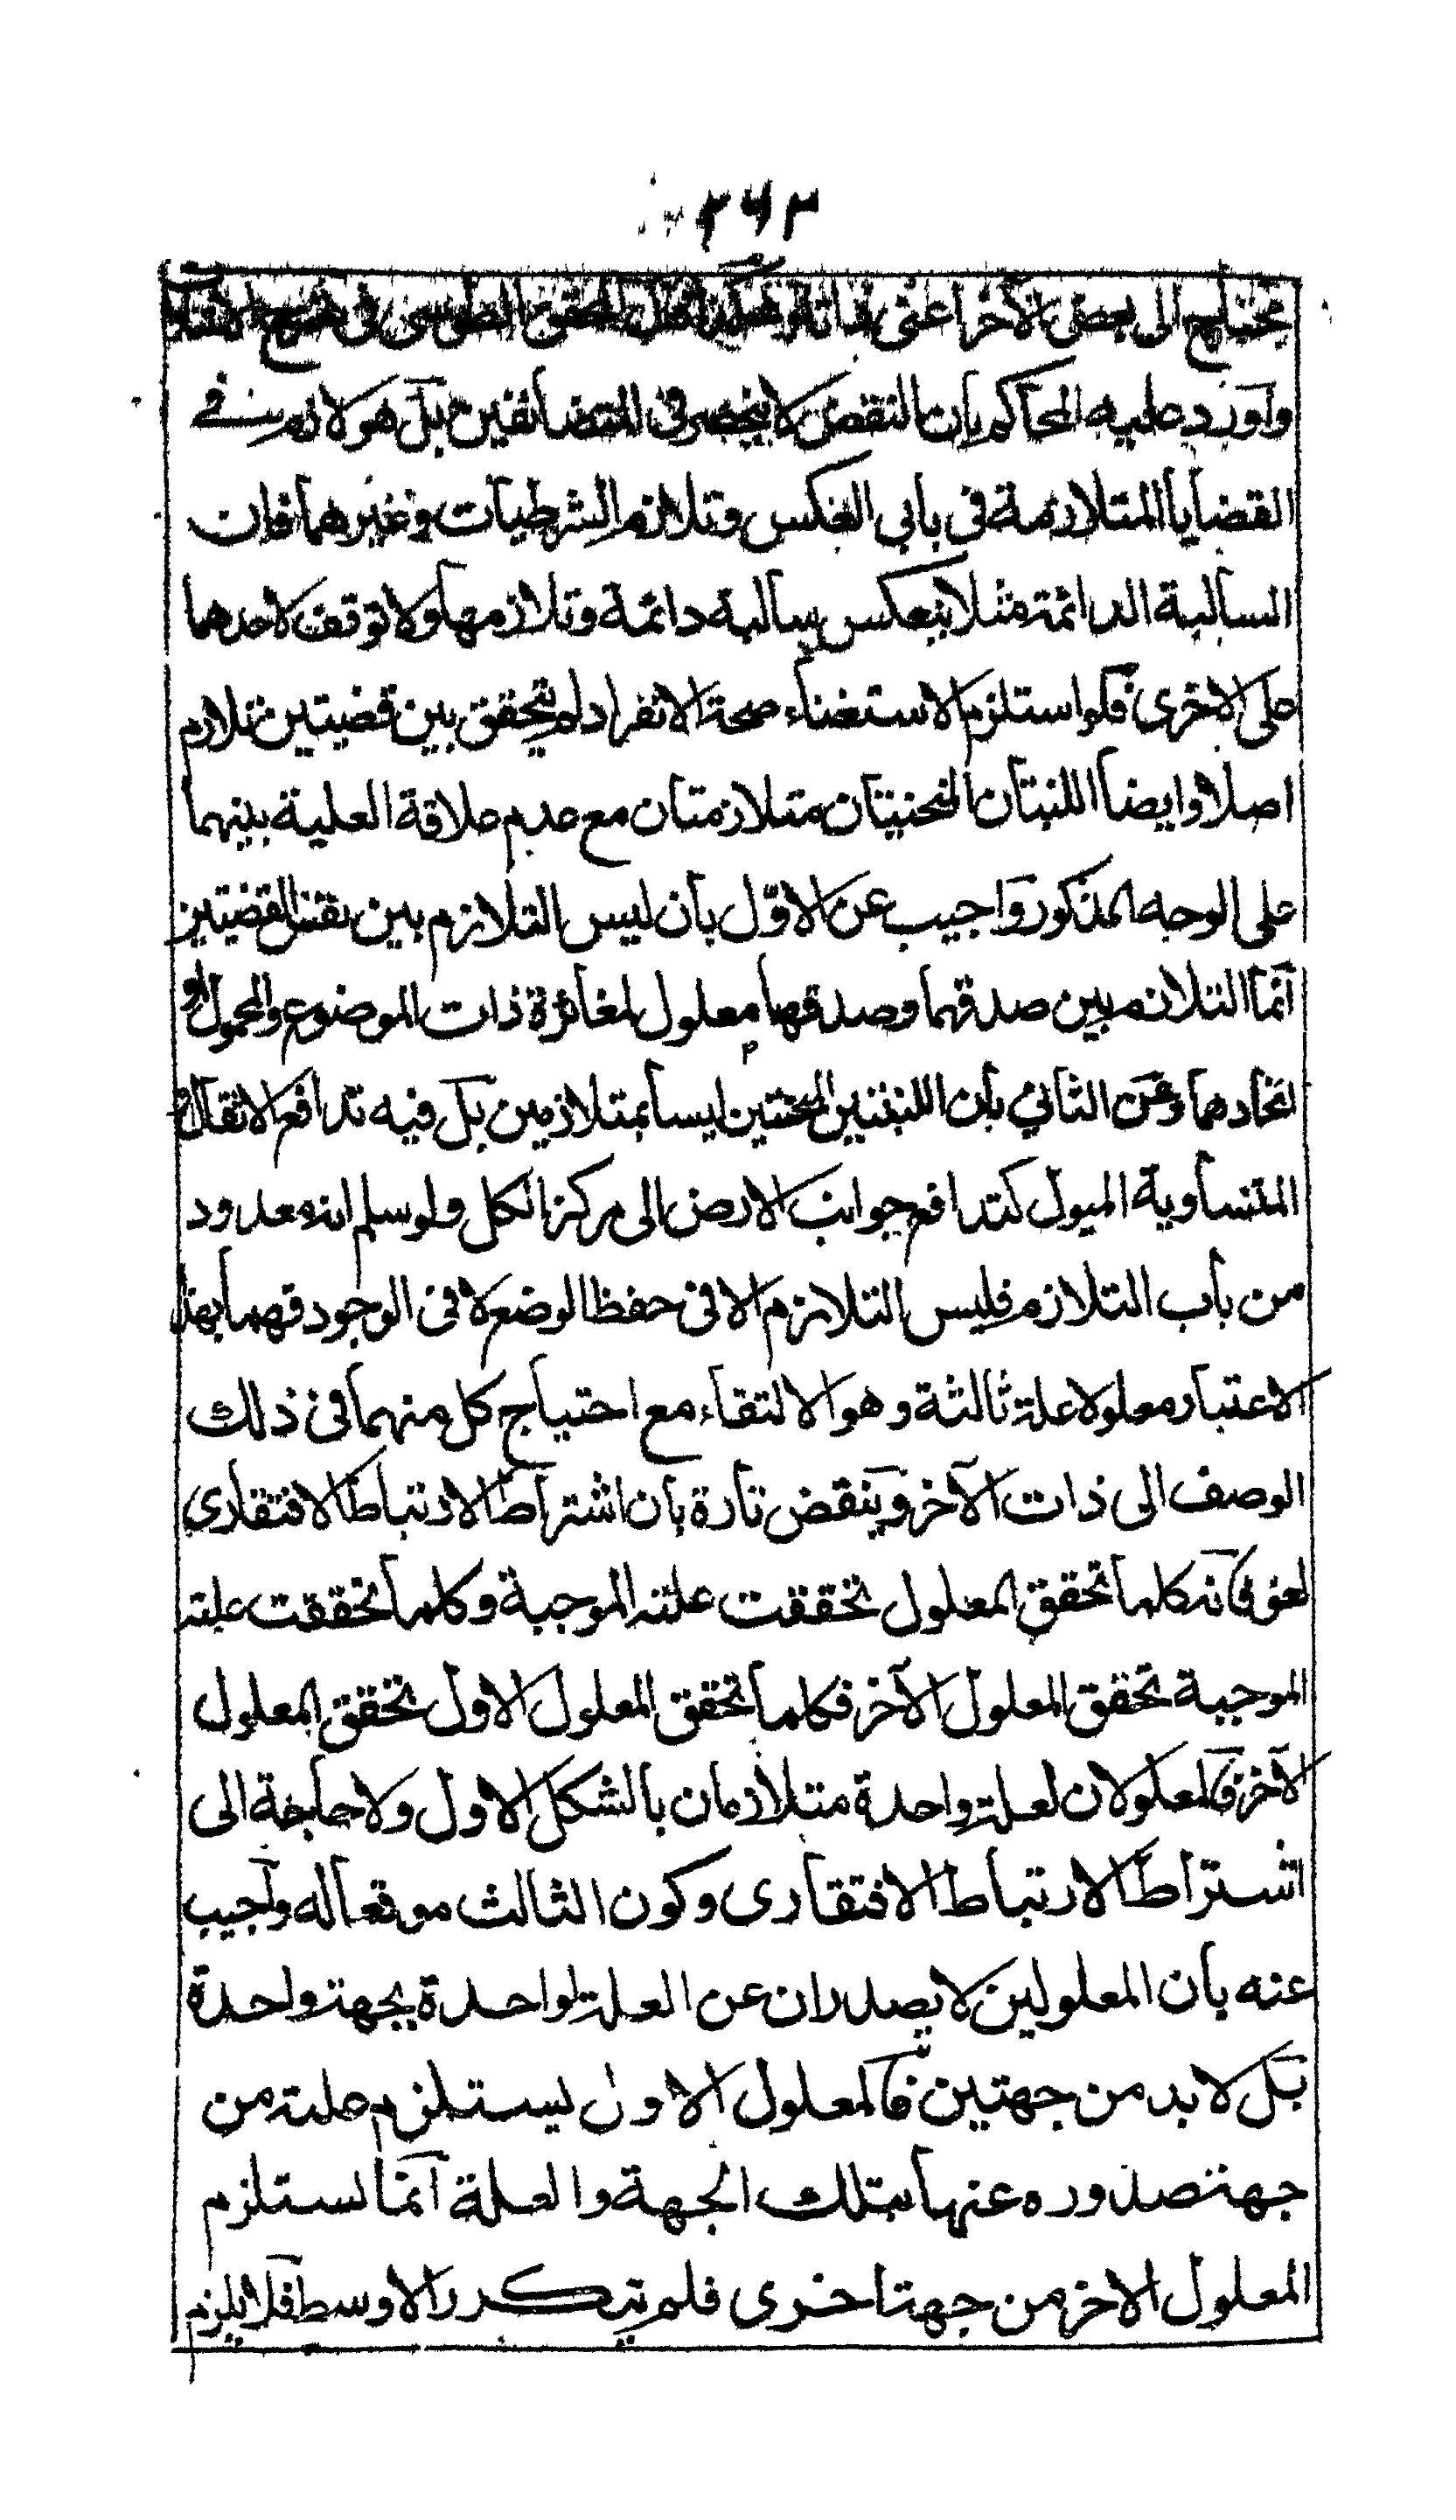 ٢٦٢
محتاج الى بعض الآخر اعنى ذاته هكذا قال المحقق الطوسى فى شرح الاشارات
واورد عليه المحاكم بان النقض لا ينحصر فى المتضائفين بل هو لازم فى
القضايا المتلازمة فى بابى العكس وتلازم الشرطيات وغيرهما فان
السالبة الدائمة مثلا ينعكس سالبة دائمة وتلازمها ولا توقف لاحدهما
على الاخرى فلو استلزم الاستغناء صحة الانفراد لم يتحقق بين قضيتين تلازم
اصلا وايضا اللبنتان المنحنيتان متلازمتان مع عدم علاقة العلية بينهما
على الوجه المذكور واجيب عن الاوّل بان ليس التلازم بين نفس القضيتين
انما التلازم بين صدقهما وصدقهما معلول لمغائرة ذات الموضوع والمحمول او
اتحادهما وعن الثاني بان اللبنتين المنحنيتين ليسا بمتلازمين بل فيه تدافع الاثقال
المتساوية الميول كتدافع جوانب الارض الى مركز الكل ولو سلم انه معدود
من باب التلازم فليس التلازم الا فى حفظ الوضع لا فى الوجود فهما بهذا
الاعتبار معلولا علة ثالثة وهو الالتقاء مع احتياج كل منهما فى ذلك
الوصف الى ذات الآخر وينقض تارة بان اشتراط الارتباط الافتقارى
لغو فانه كلما تحقق المعلول تحققت علته الموجبة وكلما تحققت علته
الموجبة تحقق المعلول الآخر فكلما تحقق المعلول الاول تحقق المعلول
الآخر فالمعلولان لعلة واحدة متلازمان بالشكل الاول ولا حاجة الى
اشتراط الارتباط الافتقارى وكون الثالث موقعا له واجيب
عنه بان المعلولين لا يصدران عن العلة الواحدة بجهة واحدة
بل لا بد من جهتين فالمعلول الاول يستلزم علته من
جهة صدوره عنها بتلك الجهة والعلة انما تستلزم
المعلول الاخر من جهة اخرى فلم يتكرر الاوسط فلا يلزم